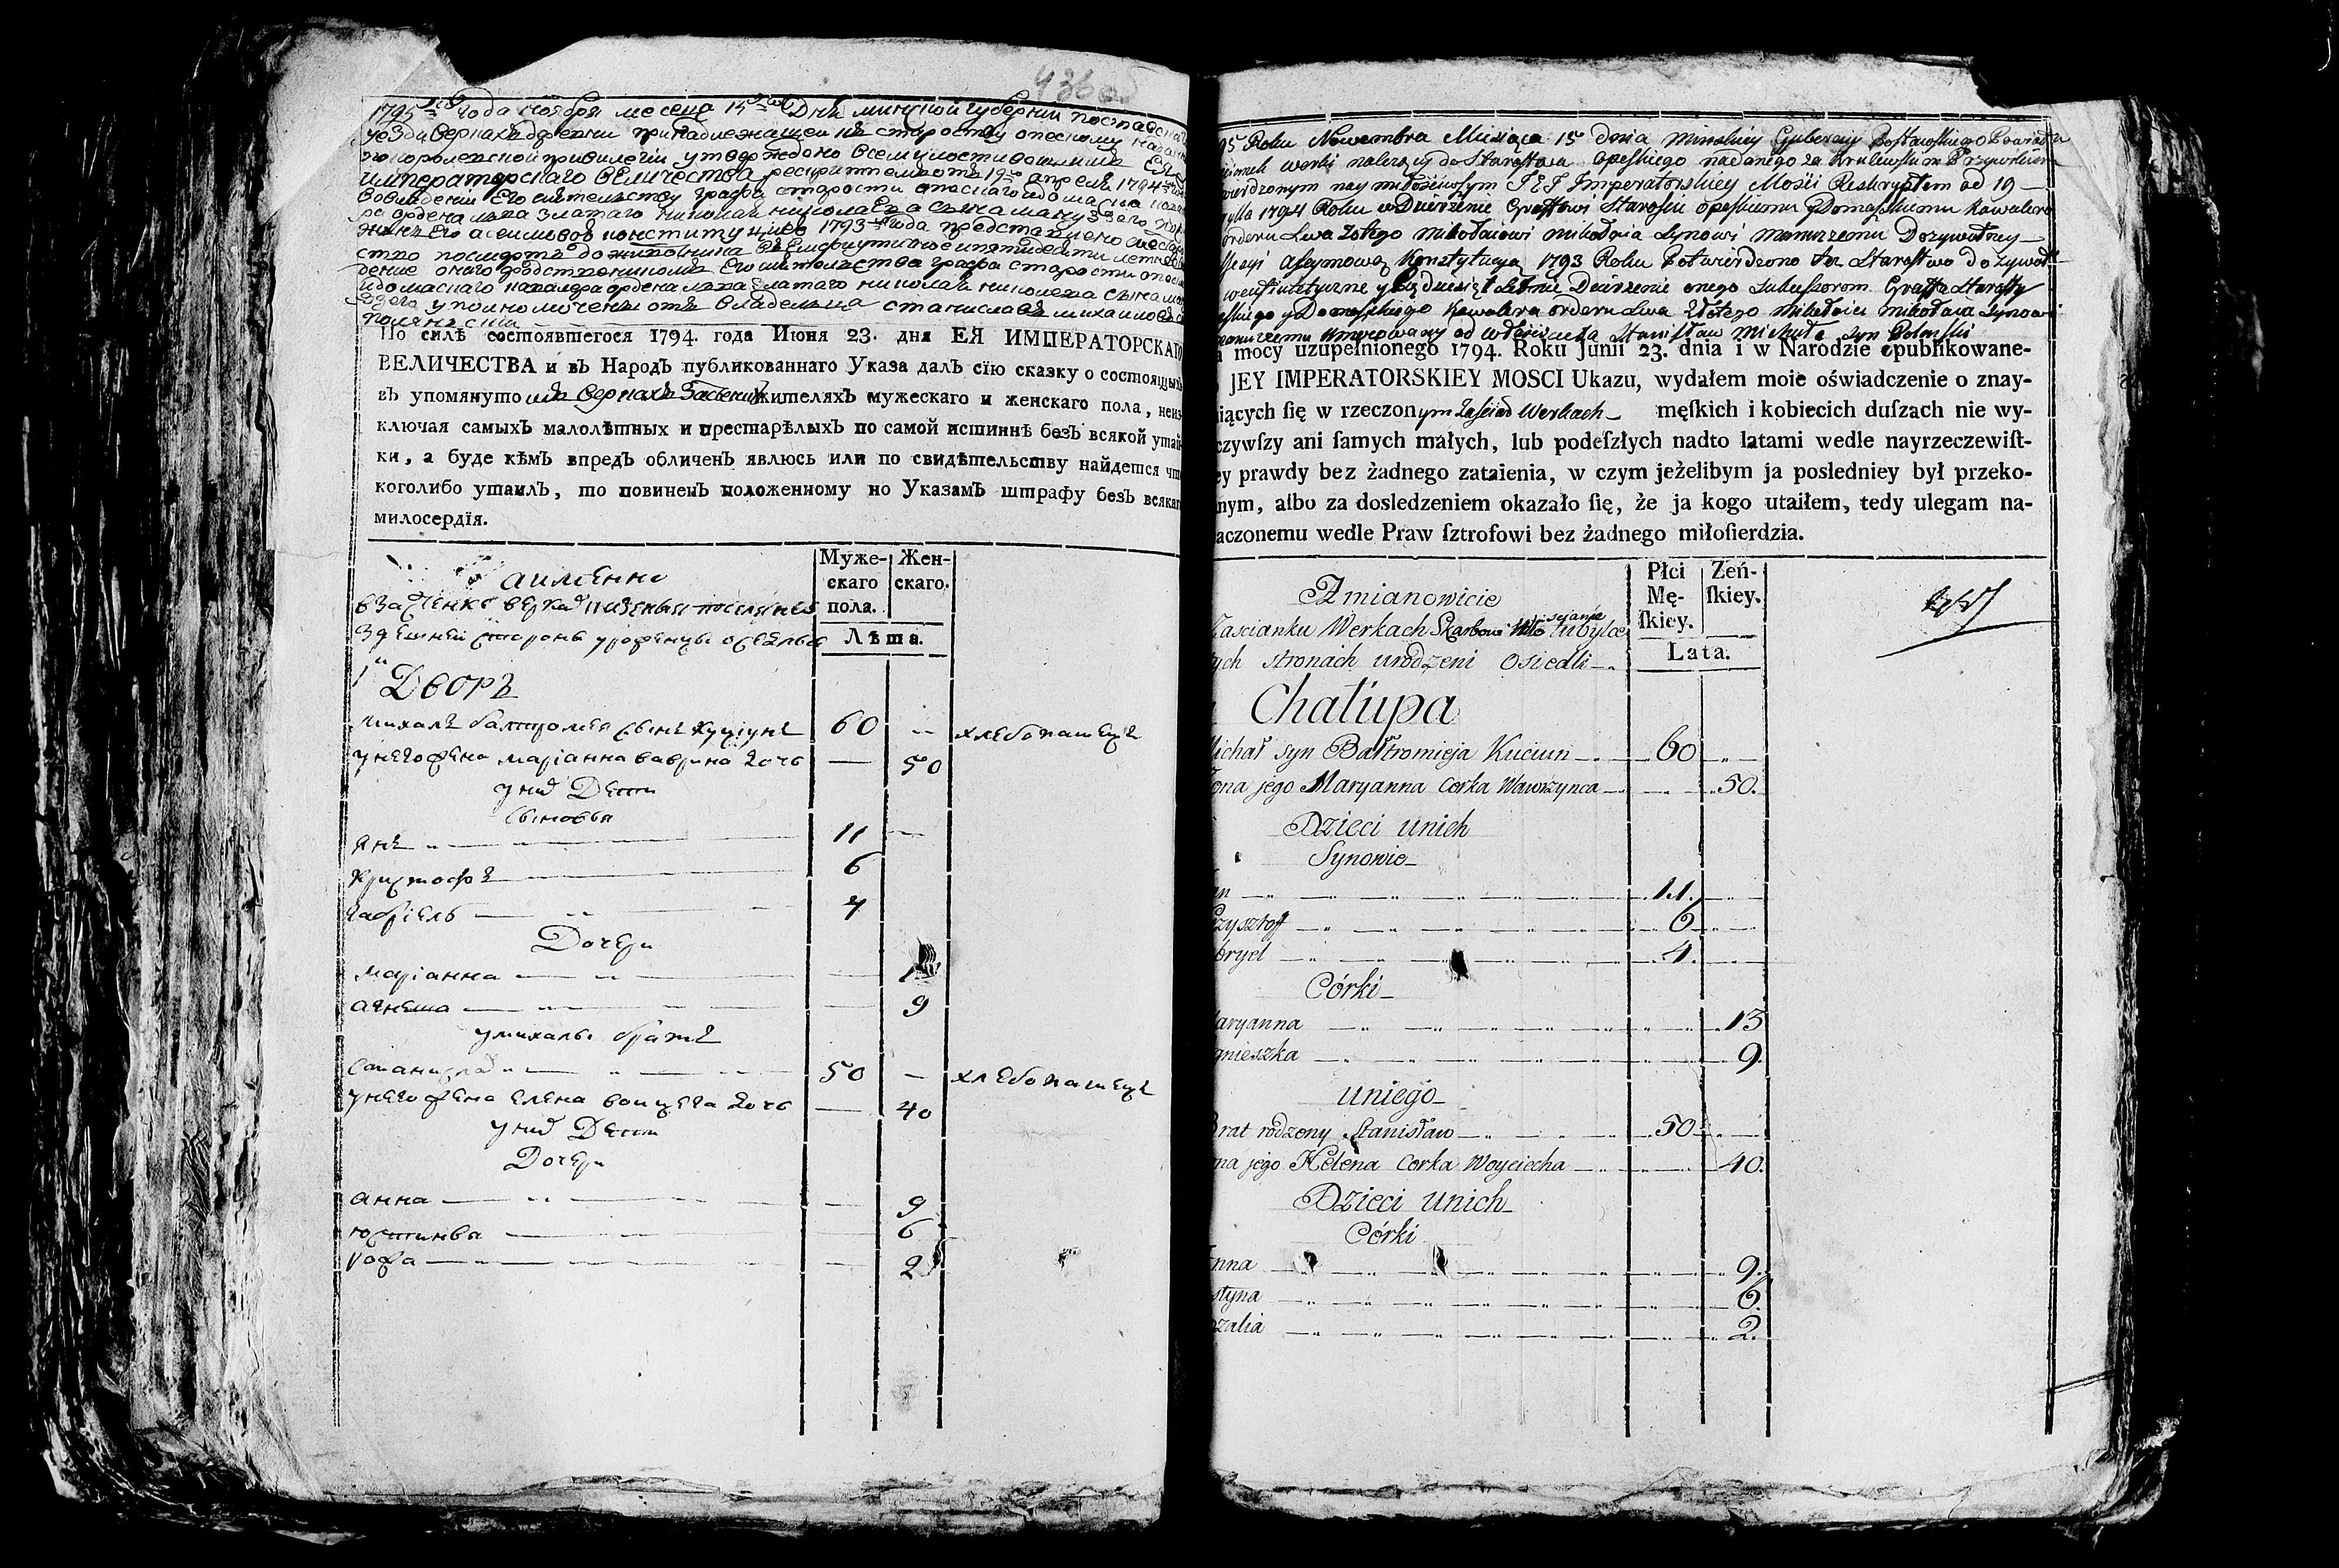 436 об
1795 года ноября месеца 15 Дня минской губернии
уезда Верках деревни принадлежащеи къ староству опескому
королевской привилегіи утверждено всемилостивейшимъ
императорскаго величества рескриптемъ отъ 19 апреля 1794
вовладении Его сиятельству графа старости опескаго идомаскаго
ордена льва златаго николая николаева сына манузего
Его асеимовой конституциею 1793 года представлено
ство последотъ
дение онаго Его сиятельства графа старости
идомаскаго кавалера ордена льва златаго николая николаева сына
уполномочены отъ владельца станиславъ михаиловъ

По силѣ состоявшегося 1794. года Июня 23. дня ЕЯ ИМПЕРАТОРСКАГО
ВЕЛИЧЕСТВА и въ Народъ публикованнаго Указа далъ сїю сказку о состоящихъ
въ упомянуто мъ Верках Застенк жителяхъ мужескаго и женскаго пола, неиз
ключая самыхъ малолѣтныхъ и престарѣлыхъ по самой истиннѣ безъ всякой утай
ки, а буде кѣмъ впредь обличенъ явлюсь или по свидѣтельству найдется что
коголибо утаилъ, то повиненъ положенному но Указамъ штрафу безъ всякаго
милосердїя.
аименно
Муже-
скаго
пола.
Жен-
скаго.
Лѣта.
взастенке веркад
здешнеи стороны урофенцы оседлые
1 Дворъ
михалъ балтромея сынъ куцюнъ 60 хлебопашецъ
унегофена маріанна ваврина дочь 50
уних Дети
Сыновья
янъ 11
криштофъ 6
габріель 4
Дочери
маріанна 1
агнеша 9
умихалы братъ
Станислав 50 хлебопашецъ
унегофена елена воицега дочь 40
уних Дети
Дочери
анна 9
юстинья 6
розa 2

95 Roku Nowembra Miesiąca 15 dnia Minskiey Gubernij Postawskiego Powiatu
werki nalezący do Starostwa Opeskiego nadanego za Krulewskim Przywilejem
wierdzonym nay miłościwszym JEJ Imperatorskiey Mości Reskryptem od 19
1794 Roku w Dzierżenie Graffowi Staroscie opeskiemu y Domaskiemu Kawalero
orderu Lwa Zołtego mikołaiowi mikołaia Synowi manuzemu Dożywotney
aseymową Konstytucyą 1793 Roku Potwierdzono Starostwo dożywot
Letnie Dzierzenie onego Graffa Starosty
y Domaskiego Kawalera orderu Lwa Złotego Mikołaia mikołaia Synowi
manuzemu umocowany od właściciela Stanisław Michała Syn
mocy uzupełnionego 1794. Roku Junii 23. dnia i w Narodzie opublikowane-
JEY IMPERATORSKIEY MOSCI Ukazu, wydałem moie oświadczenie o znay-
iących ſię w rzeczonym Zaścian Werkach męſkich i kobiecich duſzach nie wy-
czywſzy ani ſamych małych, lub podeſzłych nadto latami wedle nayrzeczewiſt-
ey prawdy bez żadnego zataienia, w czym jeżelibym ja posledniey był przeko-
nym, albo za dosledzeniem okazało ſię, że ja kogo utaiłem, tedy ulegam na-
aczonemu wedle Praw ſztrofowi bez żadnego miłoſierdzia.
Zmianowicie
Płci
Mę-
ſkiey.
Zeń-
ſkiey.
Lata.
Zascianku Werkach Skarbowi Włoscianie tubylce
tych stronach urodzeni Osiedli
Chałupa
Michał syn Bałtromieja Kuciun 60
żona jego Maryanna Corka Wawrzynca 50.
Dzieci unich
Synowie
an 11.
rzysztoff 6
bryel 4.
Córki
aryanna 13
gnieszka 9.
uniego
Brat rodzony Stanisław 50
na jego Helena Corka Woyciecha 40.
Dzieci unich
Córki
nna 9.
styna 6.
zalia 2.